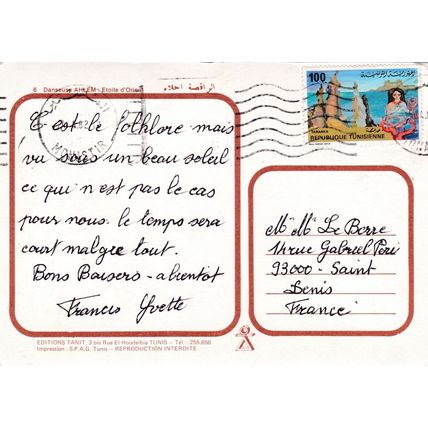 6 Danseuse AHLEM - Etoile d'Orient
الراقصة احلام
MONASTIR
100
TABARKA
REPUBLIQUE TUNISIENNE
C'est le folklore mais
vu sous un beau soleil
ce qui n'est pas le cas
pour nous. le temps sera
court malgre tout.
Bons Baisers - abientot
Francis Yvette
Mr Me Le Berre
14 rue Gabriel Peri
93000 - Saint
Denis
France
EDITIONS TANIT, 3 bis Rue El Houdeibia TUNIS - Tél : 255.856
Impression : S.P.A.G. Tunis - REPRODUCTION INTERDITE